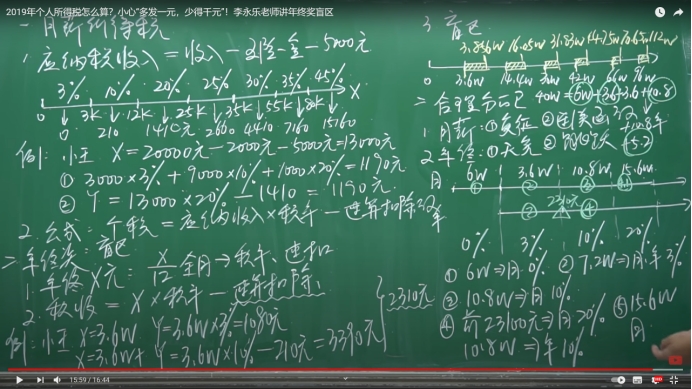 2019年个人所得税怎么算？小心“多发一元，少得千元”！李永乐老师讲年终奖盲区
一 月薪所得税
1. 应纳税收入 = 收入 - 三险一金 - 5000元
3% 10% 20% 25% 30% 35% 45%
X
0 3k 12k 25k 35k 55k 80k
0 210 1410元 2660 4410 7160 15160
例: 小王 X=20000元-2000元-5000元=13000元
① 3000×3%+9000×10%+1000×20%=1190元
② Y=13000×20%-1410=1190元
2 公式: 个税=应纳收入×税率-速算扣除
二 年终奖: 盲区
1. 年终X元: X/12 查月→税率、速扣
2. 税收= X×税率-速算扣除.
例: 小王 X=3.6W Y=3.6W×3%=1080元
X=3.6W+ Y=3.6W×10%-210元=3390元
2310元
三. 盲区
3.856W 16.05W 31.83W 44.75W 70.65W 112W
0 3.6W 14.4W 30W 42W 66W 96W
1 月薪:
2 年终:
月 6W 3.6W 10.8W 15.6W
① ② ③
② 2310元 ④
0% 3% 10% 20%
① 6W⇒月0% ② 7.2W⇒月、年3%
③ 10.8W⇒月10%
④ 前23100元⇒月20%
10.8W⇒年10%
⑤ 15.6W
月
15:59 / 16:44